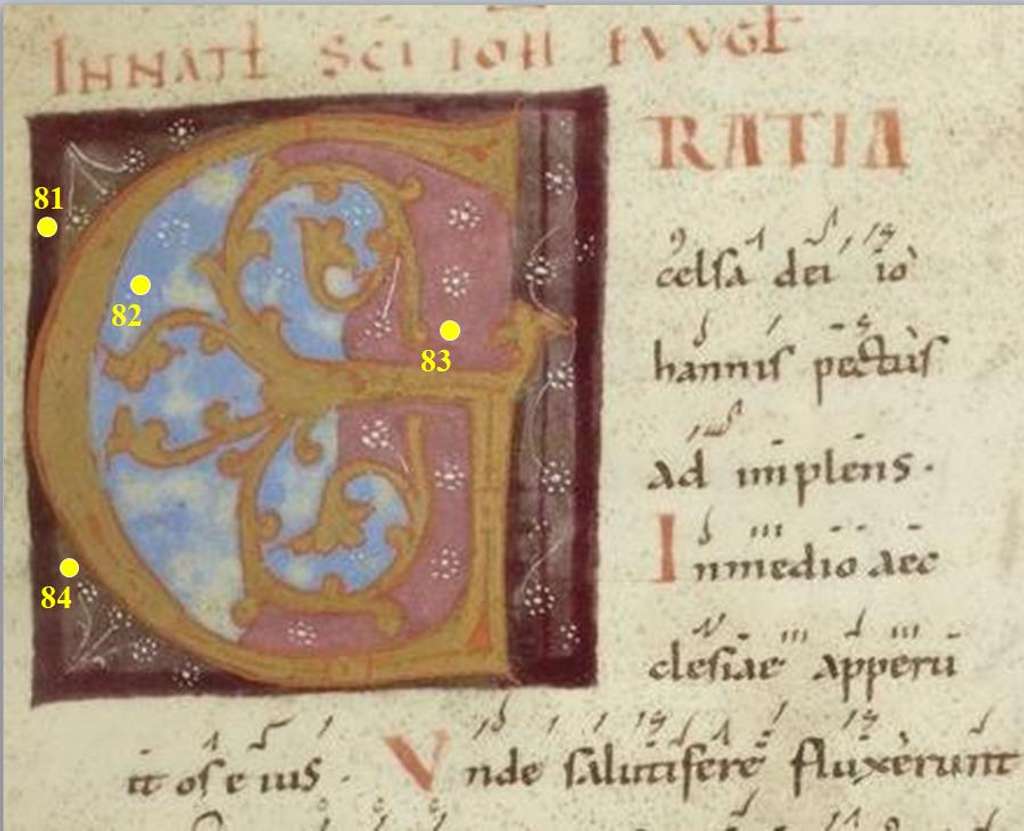 INNATT̄ SCI IOH EVVGT̄
GRATIA
celsa dei io
hannis pectus
ad implens.
Inmedio aec
clesiae apperu
it os e ius. Vnde salutifere fluxerunt
81
82
83
84